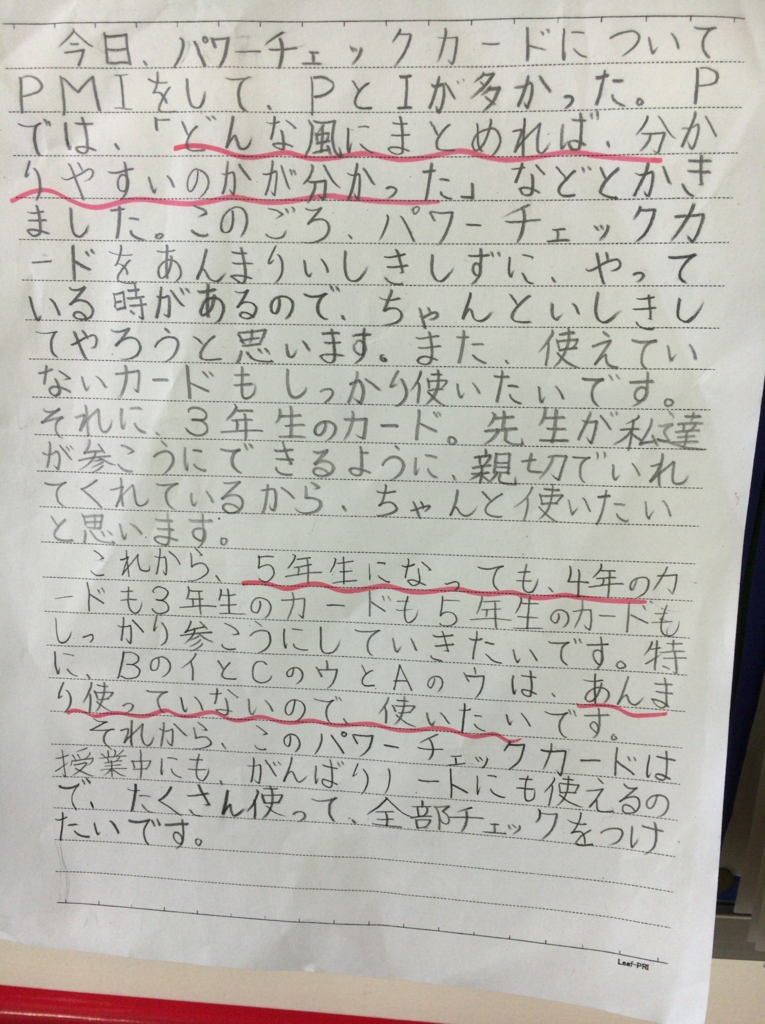 今日、パワーチェックカードについて
PMIをして、PとIが多かった。P
では、「どんな風にまとめれば、分か
りやすいのかが分かった」などとかき
ました。このごろ、パワーチェックカ
ードをあんまりいしきしずに、やって
いる時があるので、ちゃんといしきし
てやろうと思います。また、使えてい
ないカードもしっかり使いたいです。
それに、3年生のカード。先生が私達
が参こうにできるように、親切でいれ
てくれているから、ちゃんと使いたい
と思います。
これから、5年生になっても、4年のカ
ードも3年生のカードも5年生のカードも
しっかり参こうにしていきたいです。特
に、BのイとCのウとAのウは、あんま
り使っていないので、使いたいです。
それから、このパワーチェックカードは
授業中にも、がんばりノートにも使えるの
で、たくさん使って、全部チェックをつけ
たいです。
Leaf-PRI